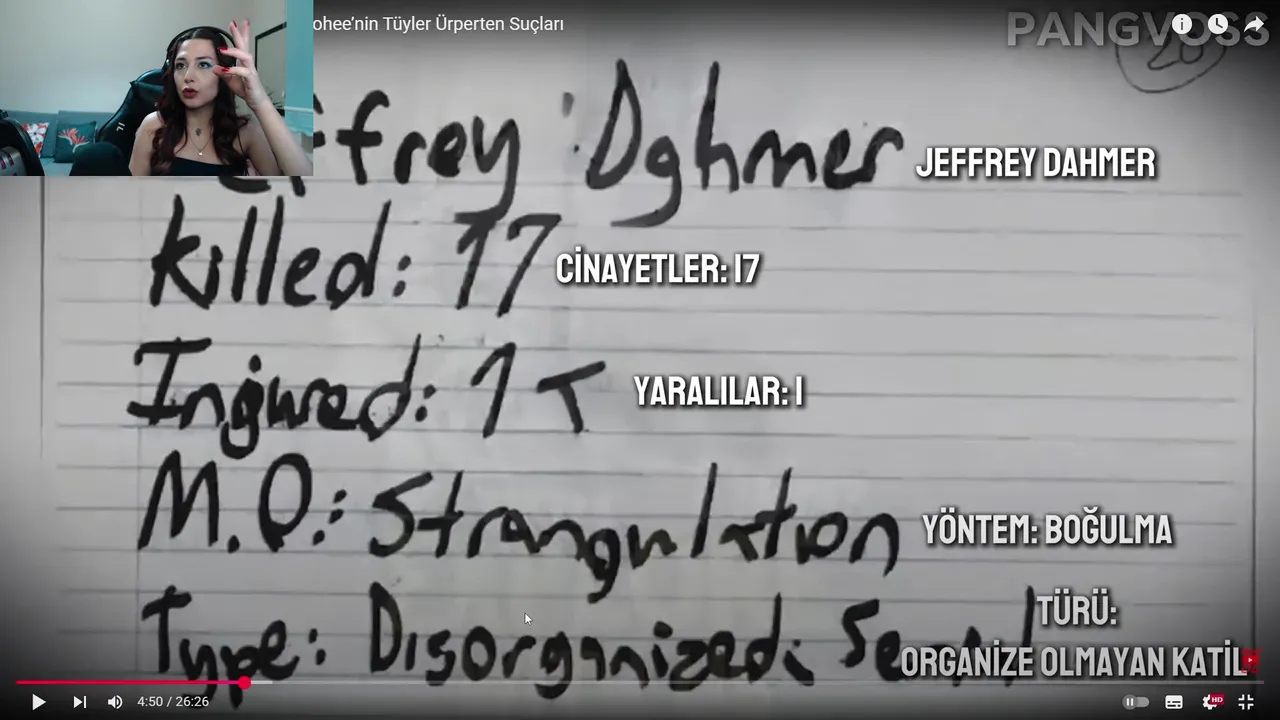 ohee'nin Tüyler Ürperten Suçları
PANGVOSS
20
ffrey Dahmer JEFFREY DAHMER
Killed: 17 CİNAYETLER: 17
Ingured: 1 YARALILAR: 1
M.O.: Strangulation YÖNTEM: BOĞULMA
Type: Disorganized: Se l TÜRÜ:
ORGANİZE OLMAYAN KATİL
4:50 / 26:26
HD